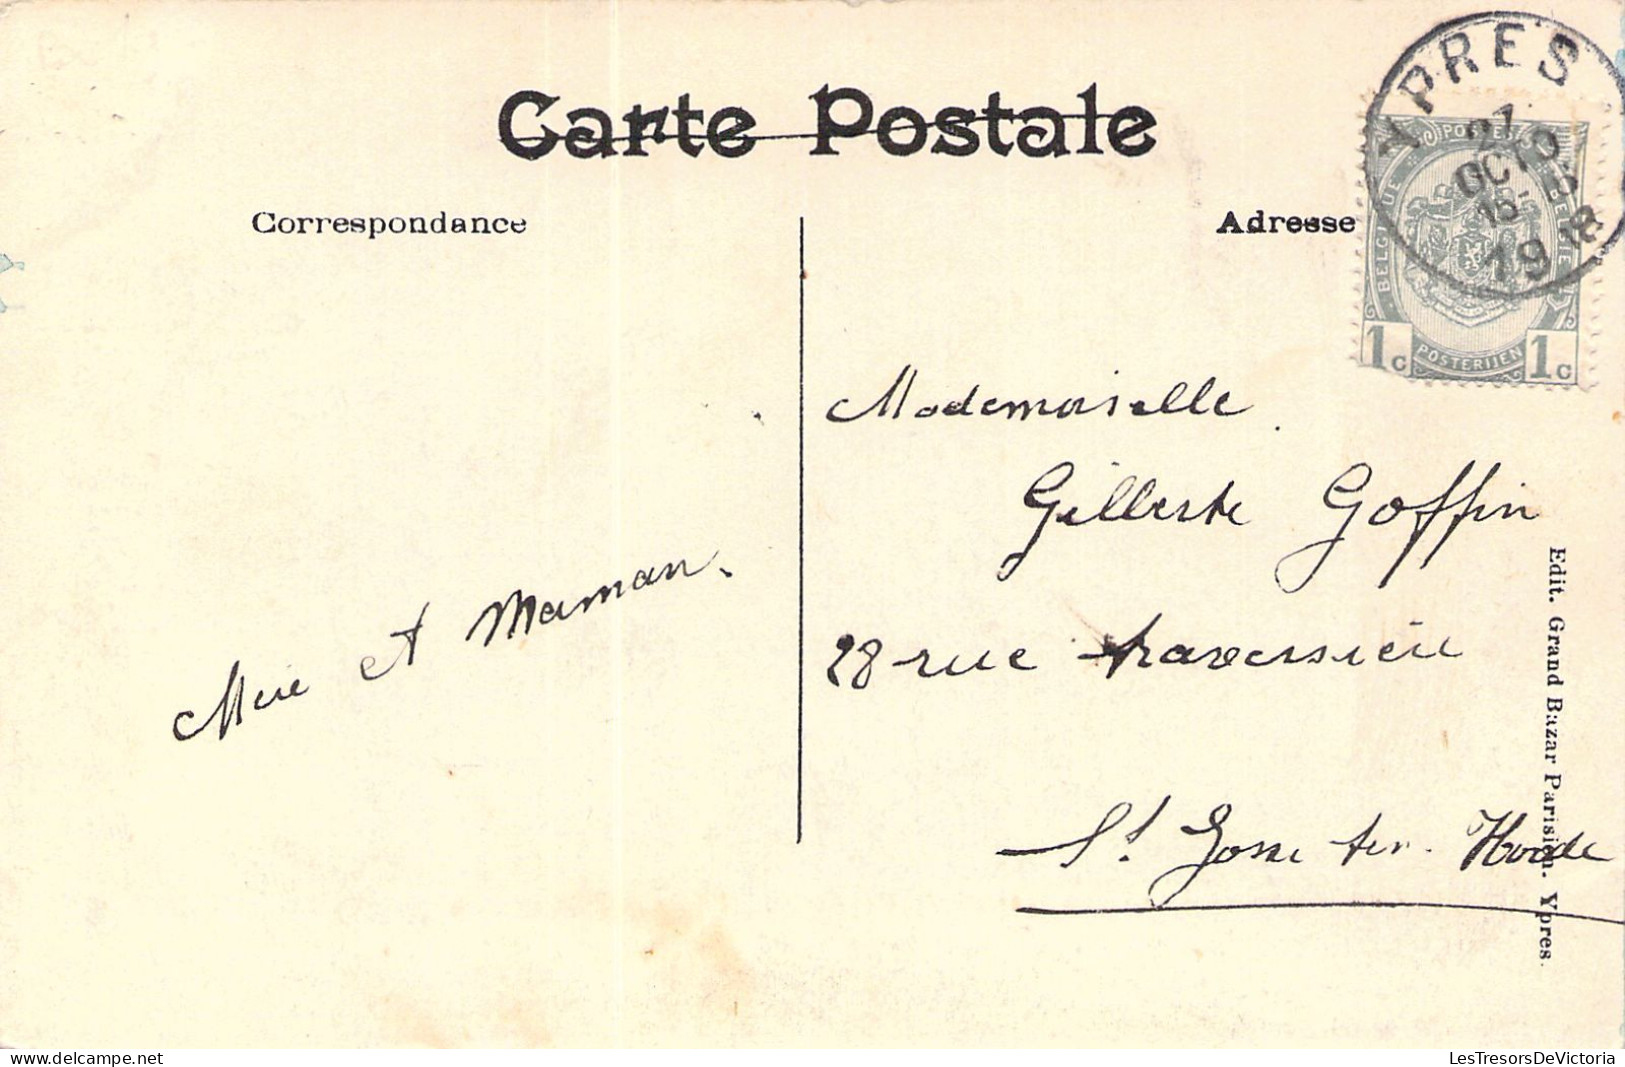 Carte Postale
Correspondance
Adresse
YPRES
27
OCTO
15-
1908
POSTES
BELGIQUE
BELGIE
1c POSTERIJEN 1c
Mademoiselle
Gilberte Goffin
28 rue traversière
St Josse ten Noode
et Maman.
Edit. Grand Bazar Parisien. Ypres.
LesTresorsDeVictoria